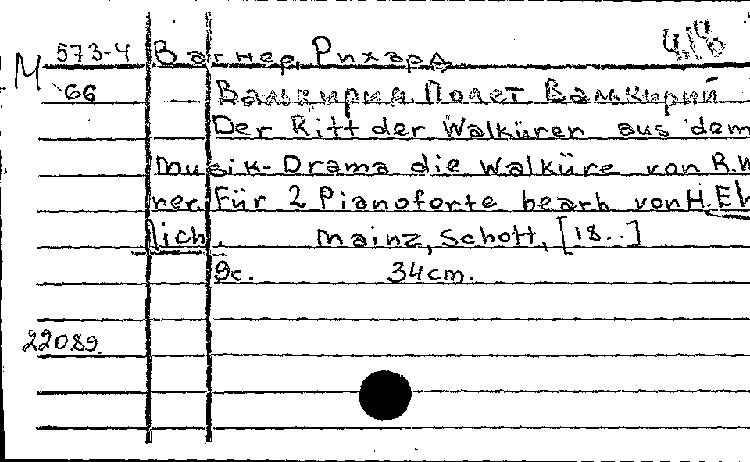 М 573-4 Вагнер, Рихард
66 Валькирия. Полет Валькирий
Der Ritt der Walküren aus dem
Musik-Drama die Walküre von R.W
ner. Für 2 Pianoforte bearb. von H. Eh
lich. Mainz, Schott, [18..]
9c. 34cm.
22089